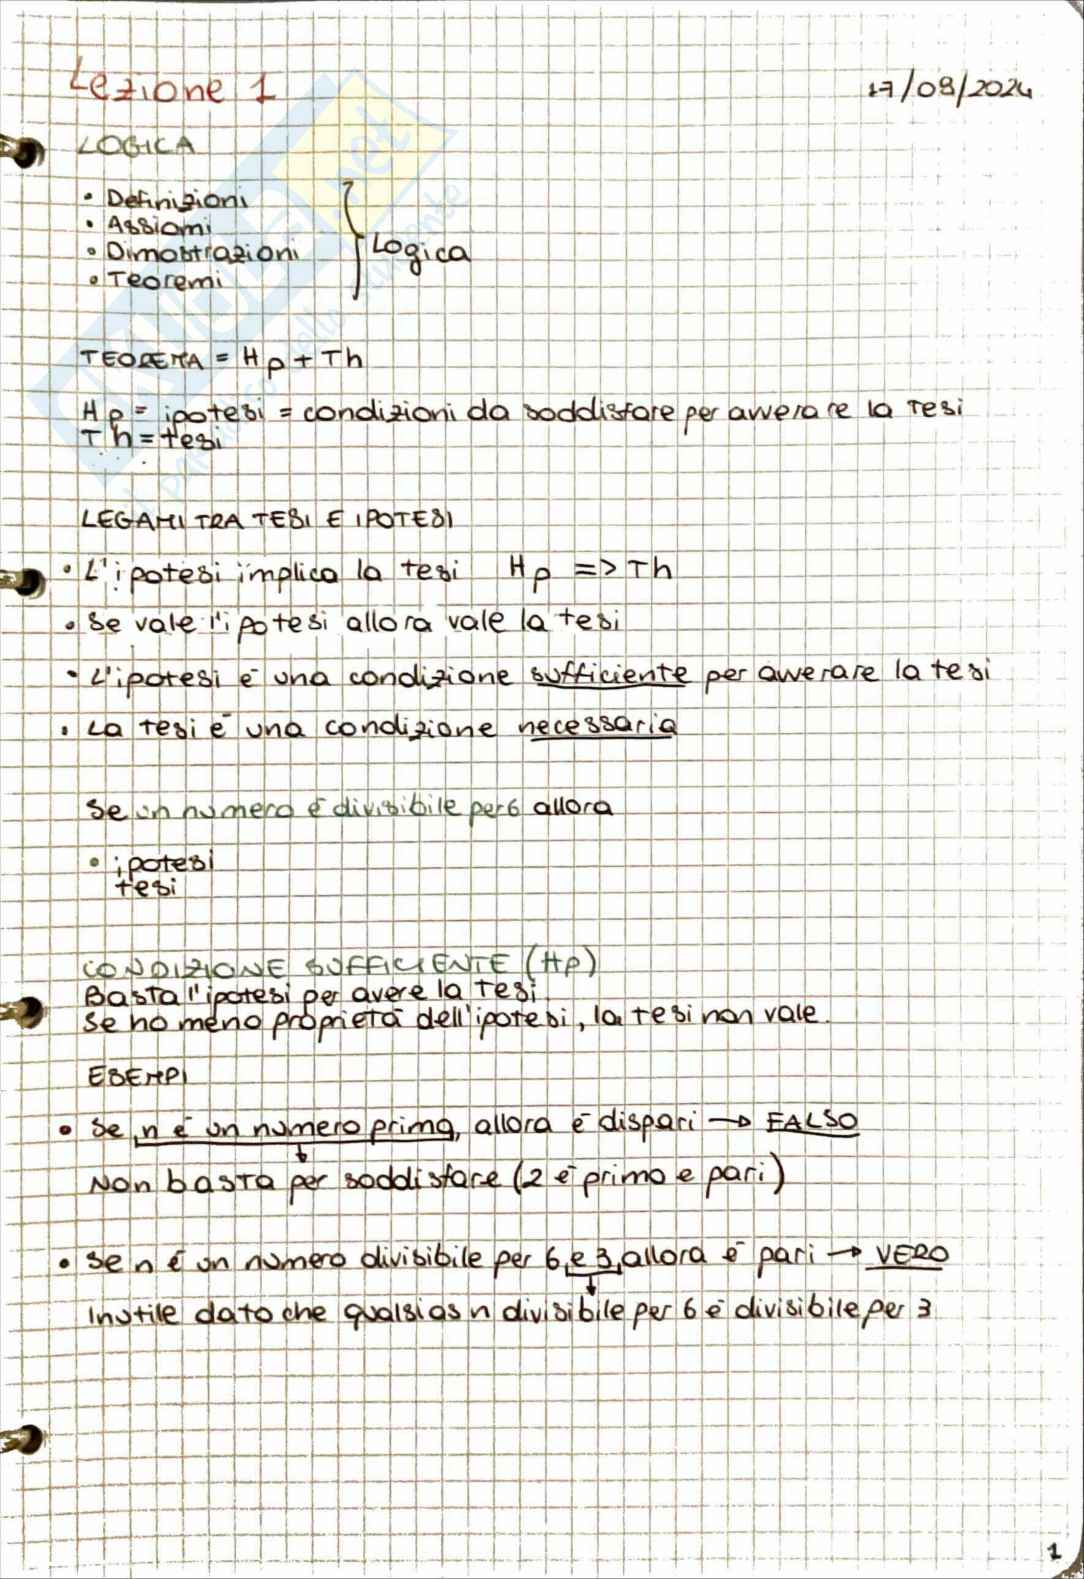 Lezione 1
17/09/2024
LOGICA
• Definizioni
• Assiomi
• Dimostrazioni
• Teoremi
Logica
TEOREMA = Hp + Th
Hp = ipotesi = condizioni da soddisfare per avverare la tesi
Th = tesi
LEGAMI TRA TESI E IPOTESI
• L'ipotesi implica la tesi Hp => Th
• Se vale l'ipotesi allora vale la tesi
• L'ipotesi è una condizione sufficiente per avverare la tesi
• La tesi è una condizione necessaria
Se un numero è divisibile per 6 allora
• ipotesi
tesi
CONDIZIONE SUFFICIENTE (Hp)
Basta l'ipotesi per avere la tesi.
Se ho meno proprietà dell'ipotesi, la tesi non vale.
ESEMPI
• Se n è un numero primo, allora è dispari → FALSO
Non basta per soddisfare (2 è primo e pari)
• Se n è un numero divisibile per 6 e 3, allora è pari → VERO
Inutile dato che qualsias n divisibile per 6 è divisibile per 3
1